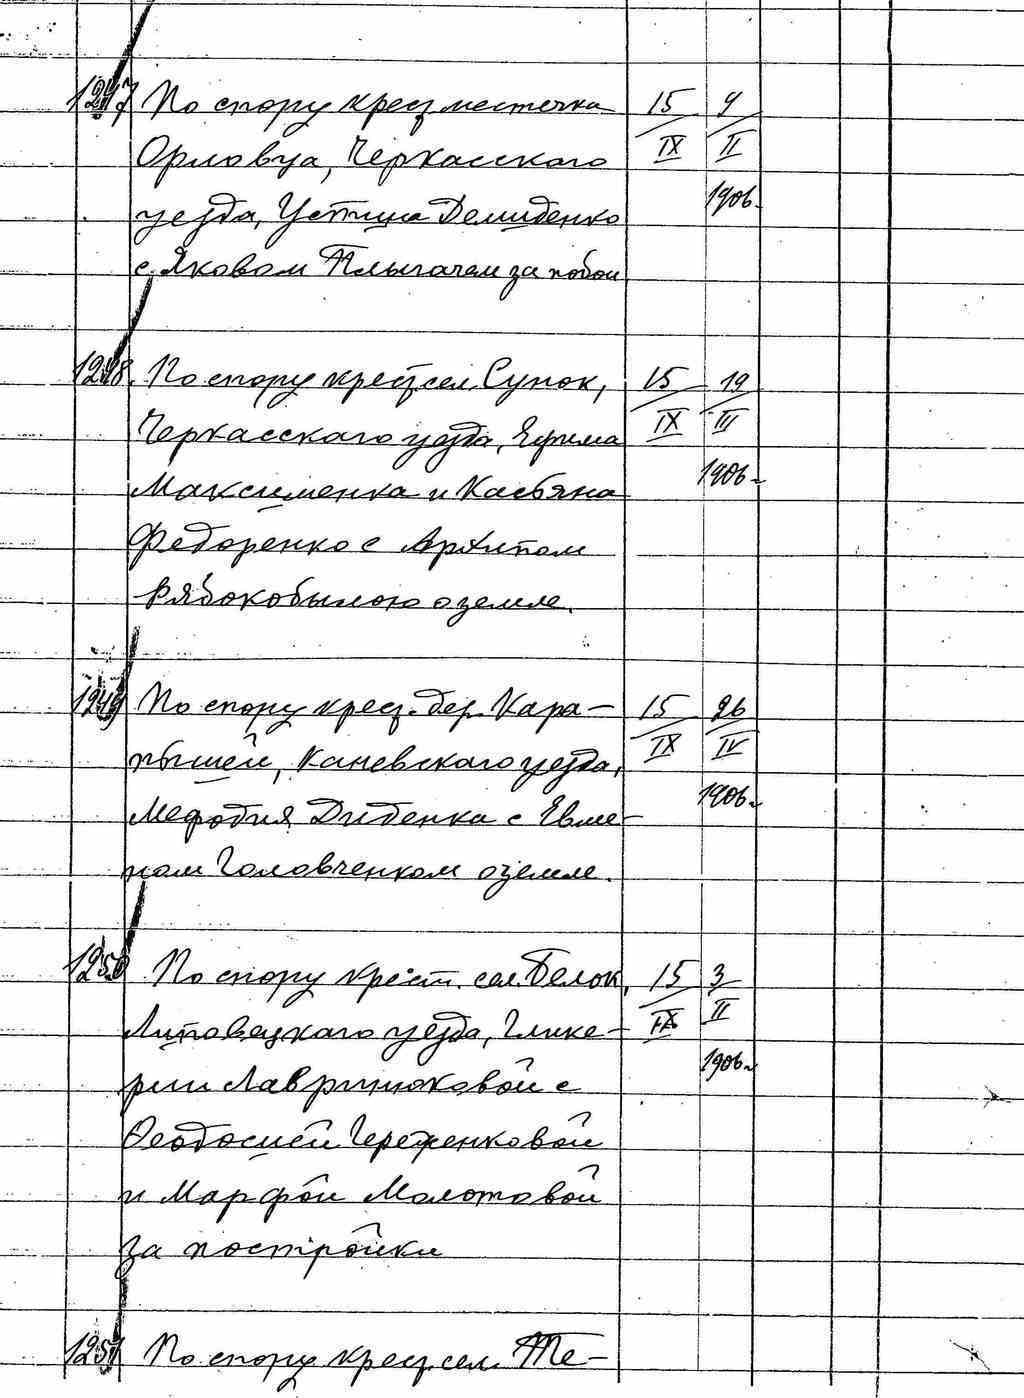 1247 По спору крест. местечка 15 4
Орловца, Черкасского IX II
уезда, Устина Демиденко 1906
с Яковом Плыгачем за побои
1248. По спору крест. сел. Сунок, 15 19
Черкасского уезда, Ефима IX III
Максименка и Касьяна 1906
Федоренко с Архипом
Рябокобылою о земле.
1249 По спору крест. дер. Кара- 15 26
пышей, Каневского уезда, IX IV
Мефодия Диденка с Евме- 1906
ном Головченком о земле.
1250 По спору крест. сел. Белок, 15 3
Липовецкого уезда, Глике- IX II
рии Лавринюковой с 1906
Феодосией Череженковой
и Марфой Молотовой
за постройки
1251 По спору крест. сел. Те-